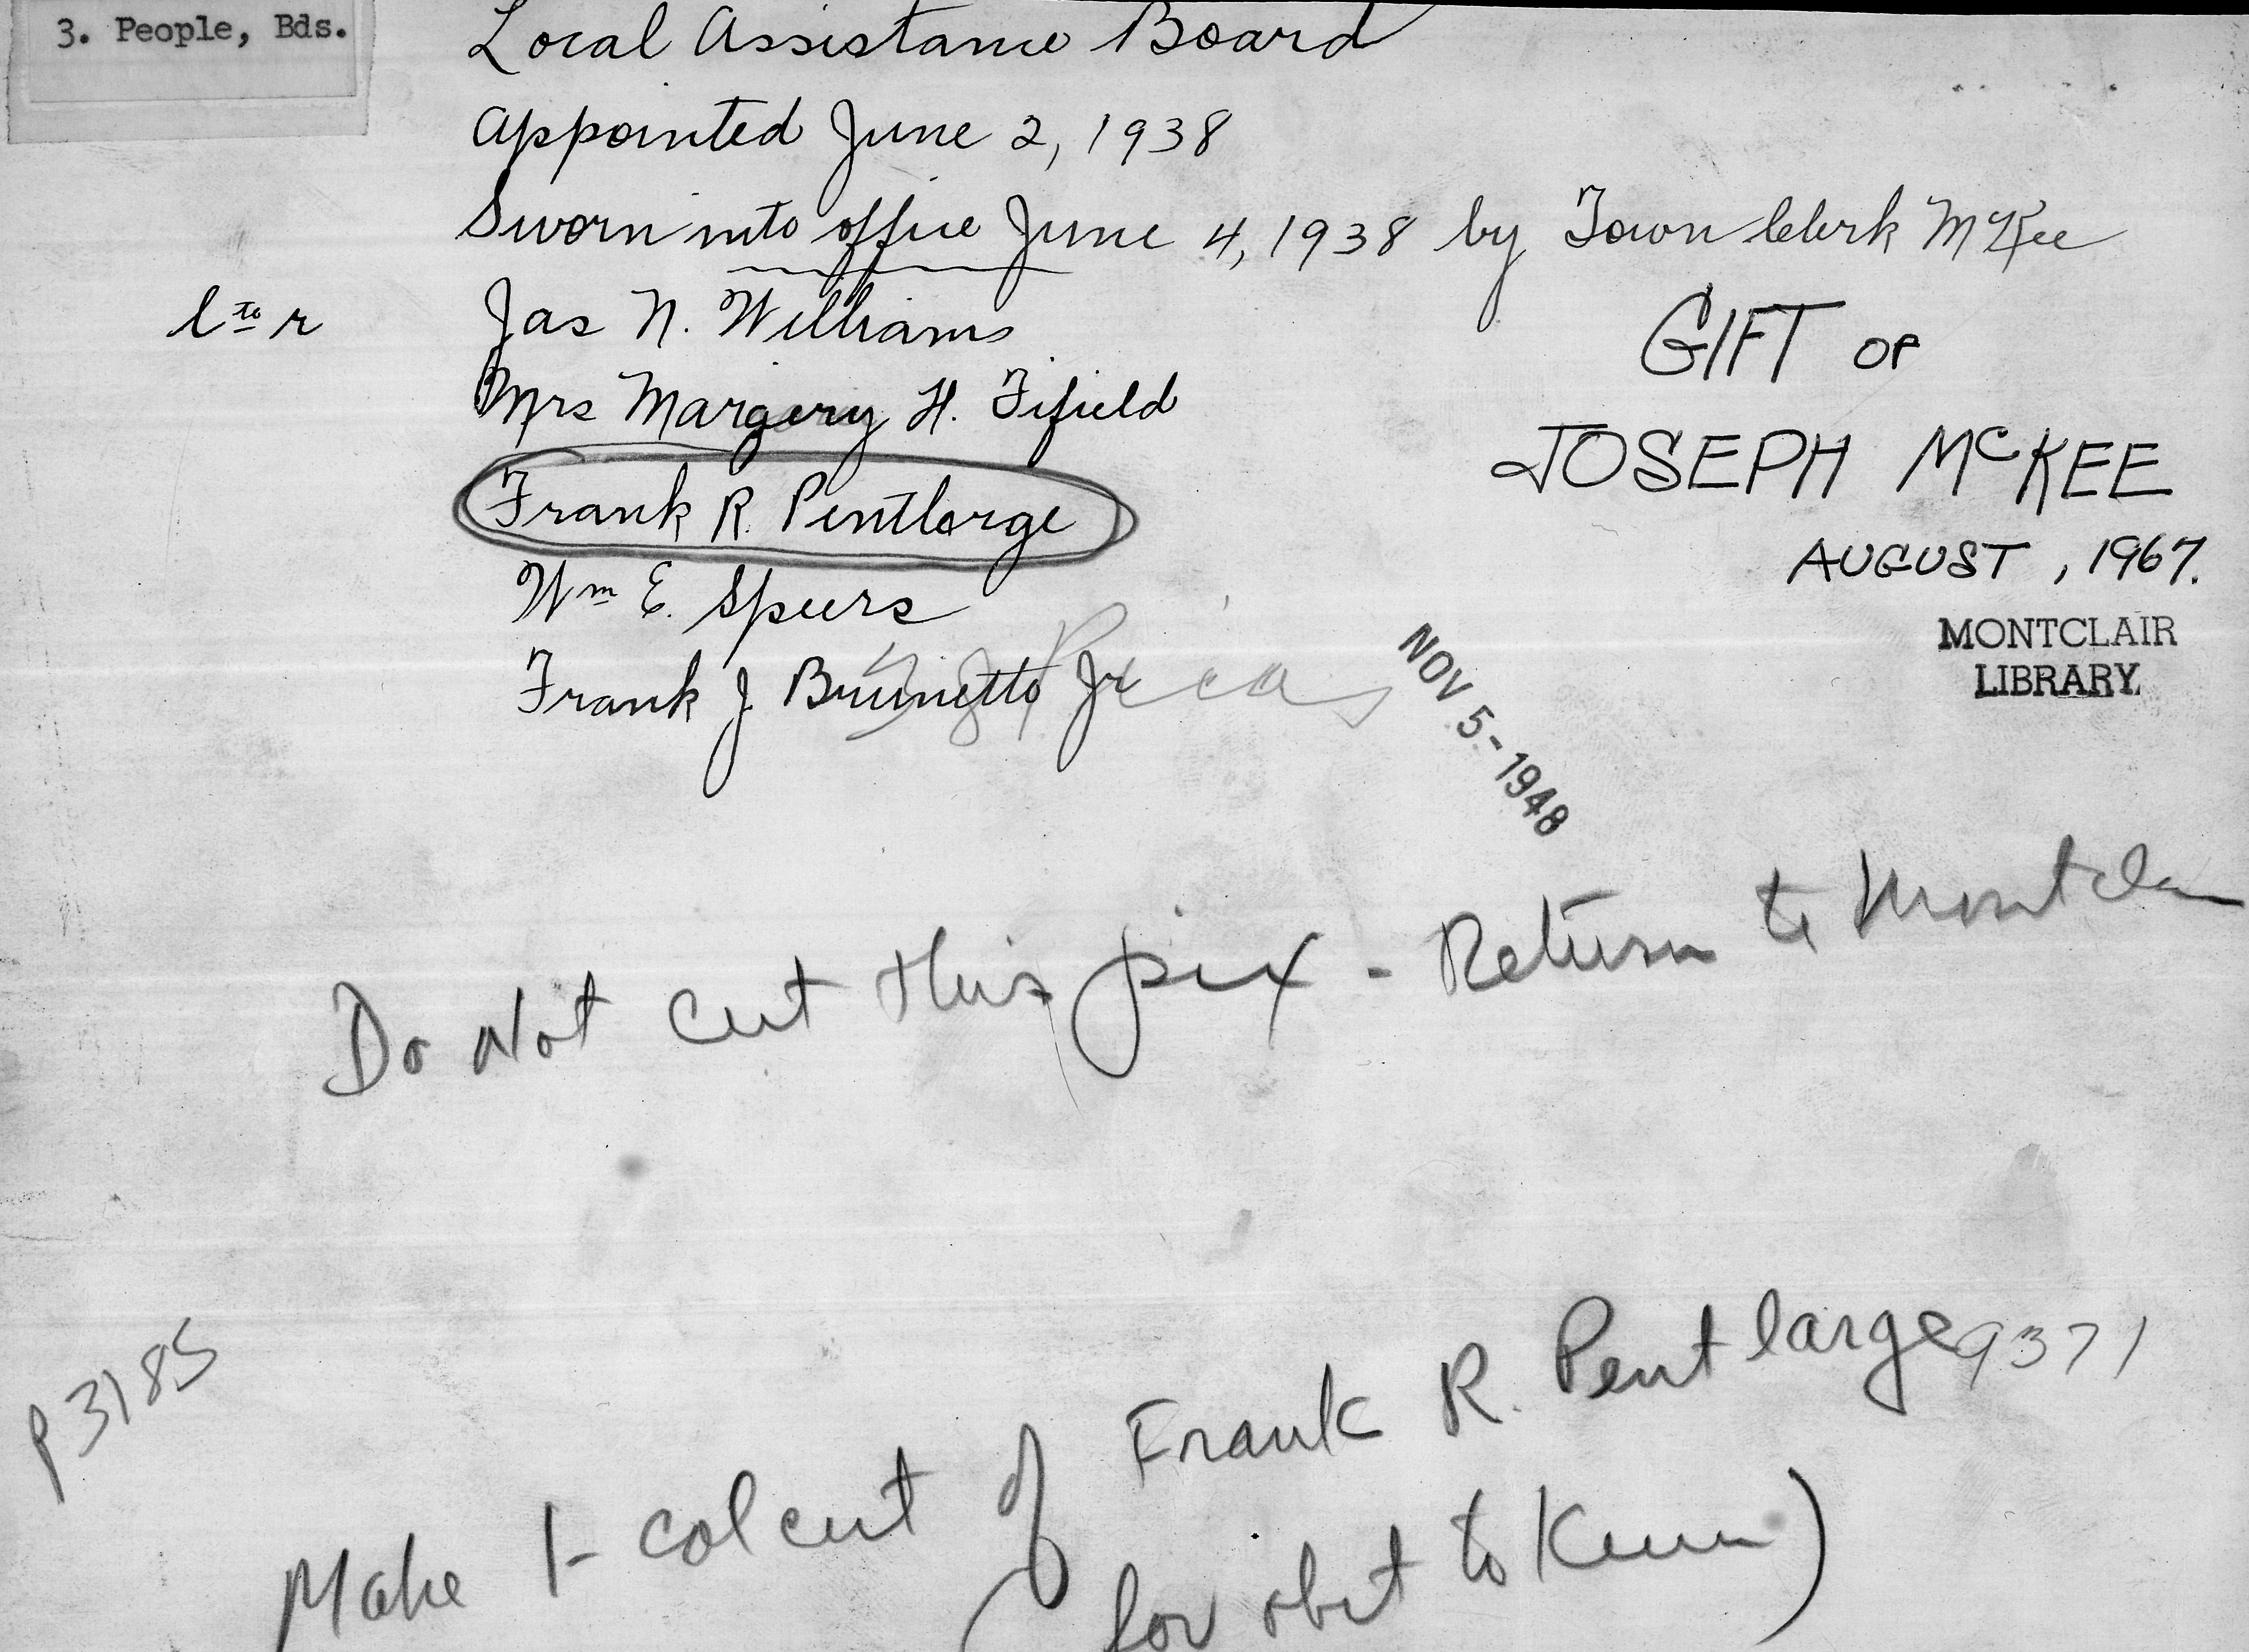 3. People, Bds.
Local Assistance Board
Appointed June 2, 1938
Sworn into office June 4, 1938 by Town Clerk McKee
l to r
Jas N. Williams
Mrs Margery H. Fifield
Frank R. Pentlarge
Wm E. Speers
Frank J. Brunetto Jr
GIFT OF
JOSEPH McKEE
AUGUST, 1967.
MONTCLAIR
LIBRARY
NOV 5-1948
Do Not cut this pix - Return to Montclair
P3185
9371
Make 1-col cut of Frank R. Pentlarge
(for obit to